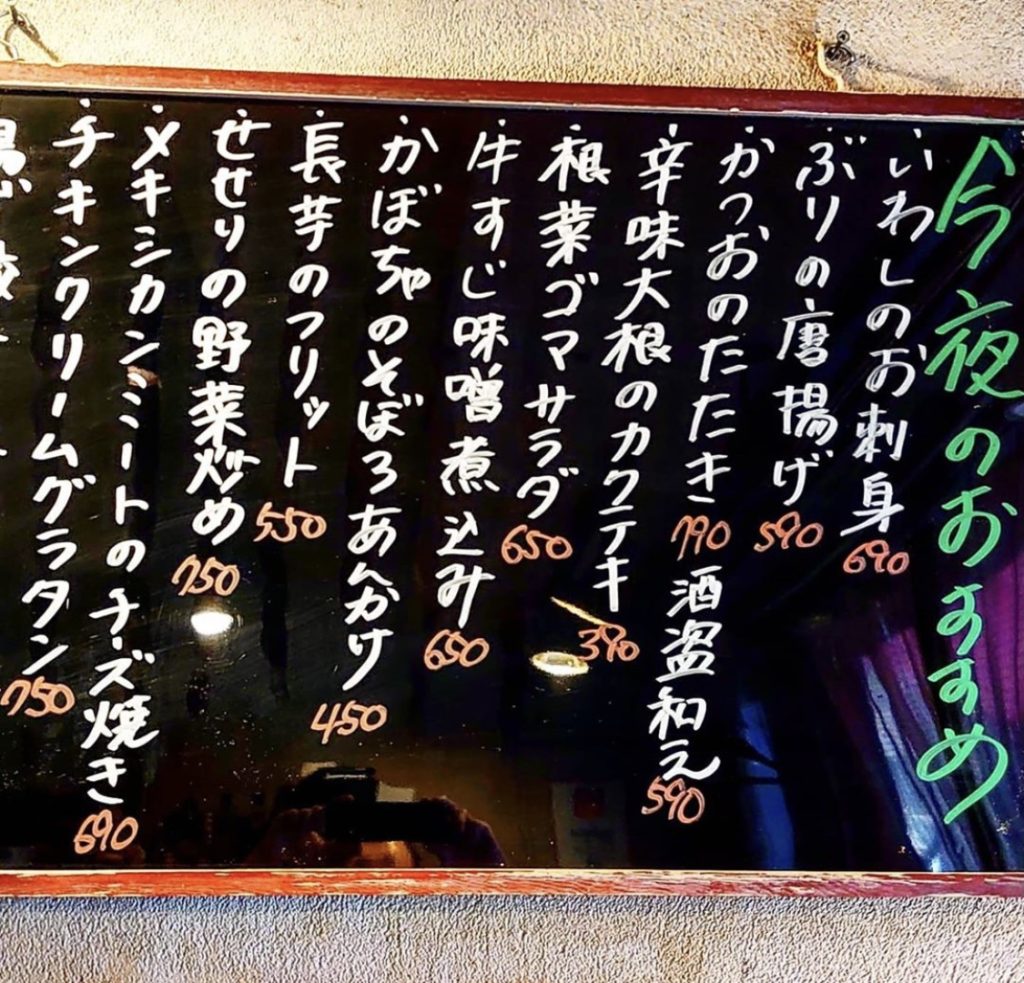 今夜のおすすめ
・いわしのお刺身 690
・ぶりの唐揚げ 590
・かつおのたたき 790
酒盗和え 590
・辛味大根のカクテキ 390
・根菜ゴマサラダ 650
・牛すじ味噌煮込み 650
・かぼちゃのそぼろあんかけ 450
・長芋のフリット 550
・せせりの野菜炒め 750
・メキシカンミートのチーズ焼き 690
・チキンクリームグラタン 750